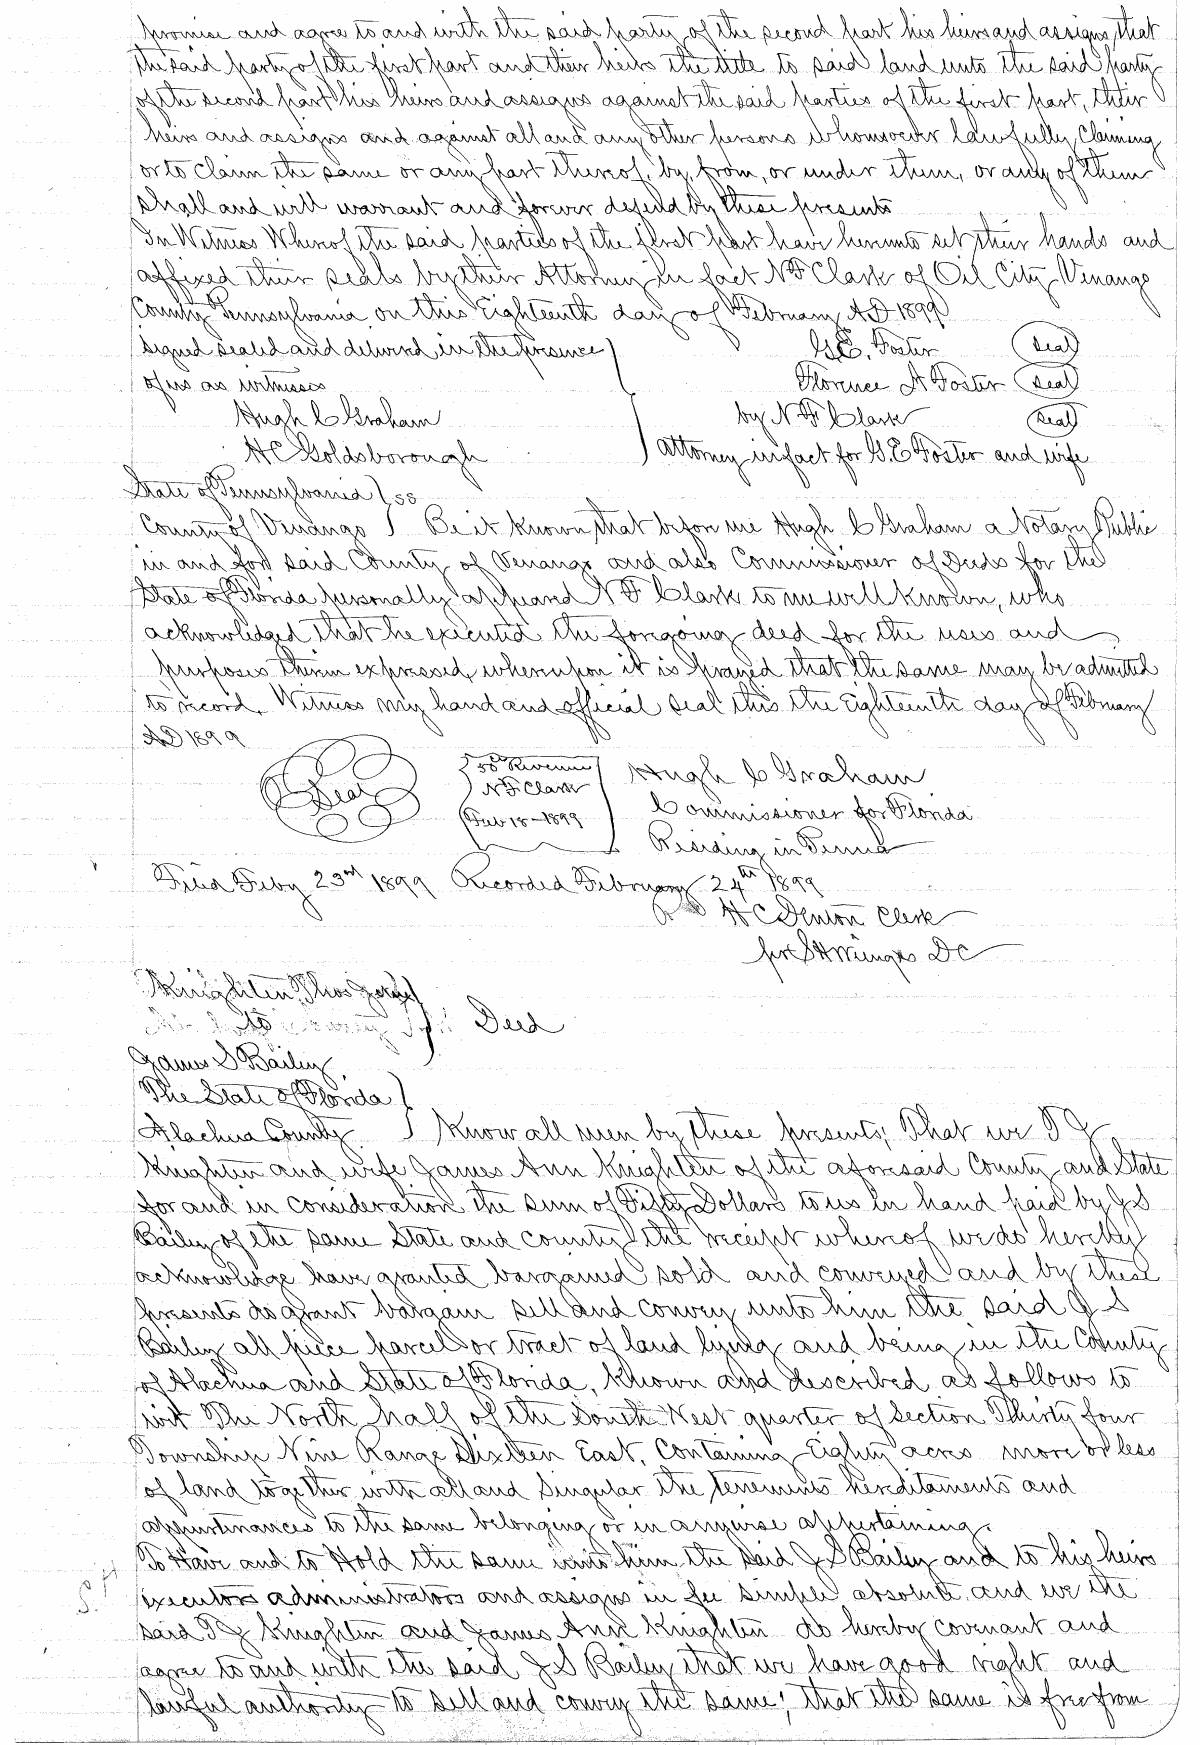 promise and agree to and with the said party of the second part his heirs and assigns, that
the said party of the first part and their heirs the title to said land unto the said party
of the second part his heirs and assigns against the said parties of the first part, their
heirs and assigns and against all and any other persons whomsoever lawfully Claiming
or to Claim the same or any part thereof, by, from, or under them, or any of them
shall and will warrant and forever defend by these presents
In Witness Whereof the said parties of the first part have hereunto set their hands and
affixed their seals by their Attorney in fact N F Clark of Oil City, Venango
County Pennsylvania on this Eighteenth day of February AD 1899
signed sealed and delivered in the presence G. E. Foster Seal
of us as witnesses Florence A Foster Seal
Hugh C Graham by N F Clark Seal
H C Goldsborough attorney in fact for G. E Foster and wife
State of Pennsylvania } ss
County of Venango } Be it known, that before me Hugh C Graham a Notary Public
in and for said County of Venango and also Commissioner of Deeds for the
State of Florida personally appeared N F Clark to me well known, who
acknowledged that he executed the foregoing deed for the uses and
purposes therein expressed, whereupon it is prayed that the same may be admitted
to record. Witness my hand and official seal this the Eighteenth day of February
AD 1899
Seal 50c Revenue Hugh C Graham
N F Clark Commissioner for Florida
Feb 18-1899 Residing in Penna
Filed Feby 23rd 1899 Recorded February 24th 1899
H C Denton Clerk
per S H Wienges D C
Knighten, Thos
to Deed
James S Bailey
The State of Florida }
Alachua County } Know all men by these presents; That we T J
Knighten and wife James Ann Knighten of the aforesaid County and State
for and in consideration the sum of Fifty Dollars to us in hand paid by J S
Bailey of the same State and county the receipt whereof we do hereby
acknowledge have granted bargained sold and conveyed and by these
presents do grant bargain sell and convey unto him the said J S
Bailey all piece parcel or tract of land lying and being in the County
of Alachua and State of Florida, known and described as follows to
wit The North half of the South West quarter of section Thirty four
Township Nine Range Sixteen East, Containing Eighty acres more or less
of land together with all and singular the tenements hereditaments and
appurtinances to the same belonging or in anywise appertaining.
To Have and to Hold the same unto him the said J S Bailey and to his heirs
executors administrators and assigns in fee simple absolute, and we the
said T J Knighten and James Ann Knighten do hereby covenant and
agree to and with the said J S Bailey that we have good right and
lawful authority to sell and convey the same; that the same is free from